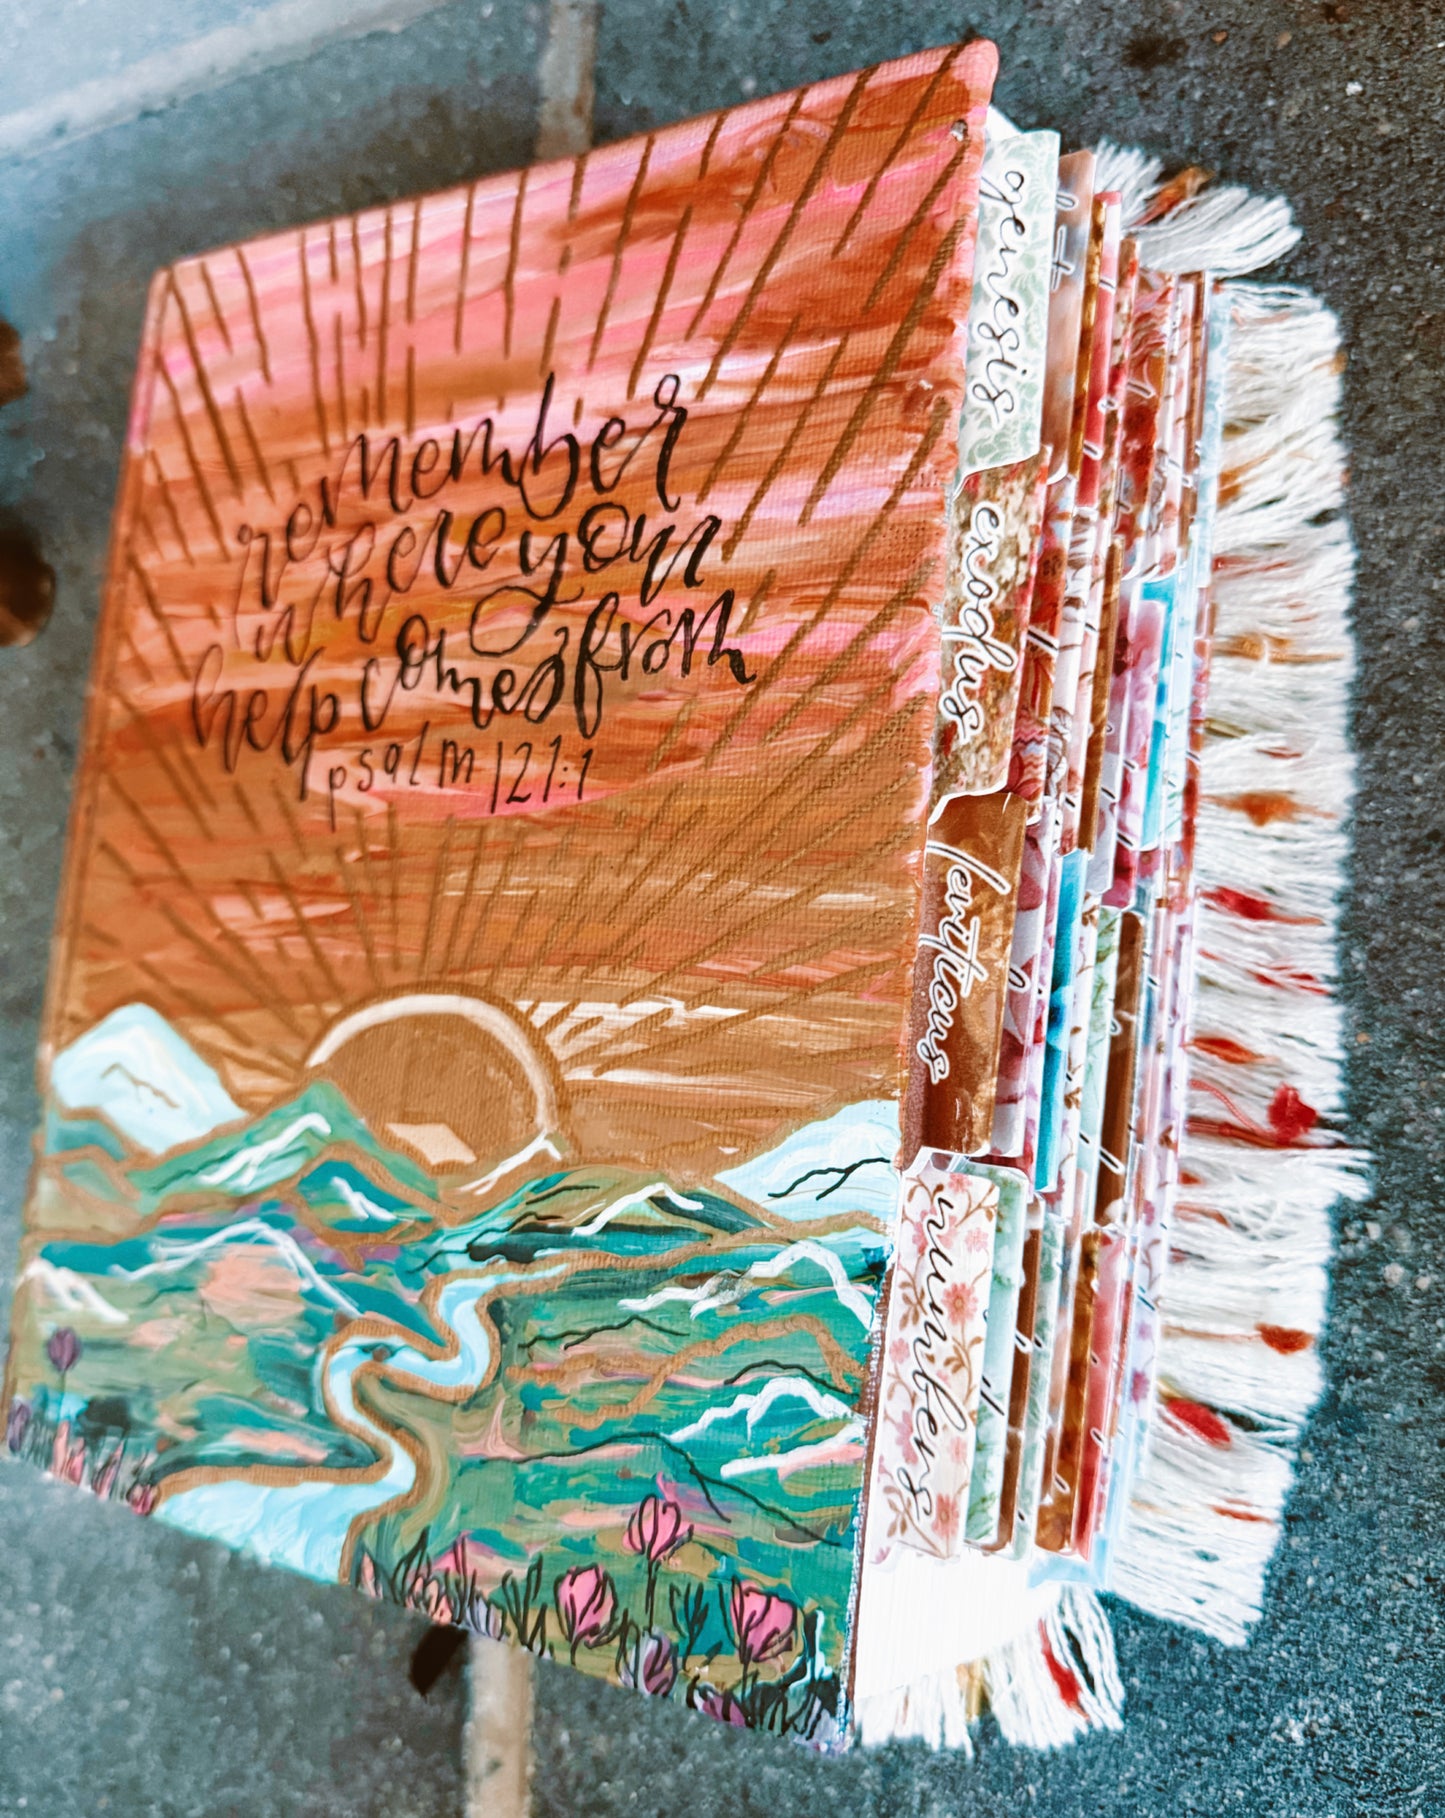 remember
where your
help comes from
psalm 121:1
genesis
exodus
leviticus
numbers